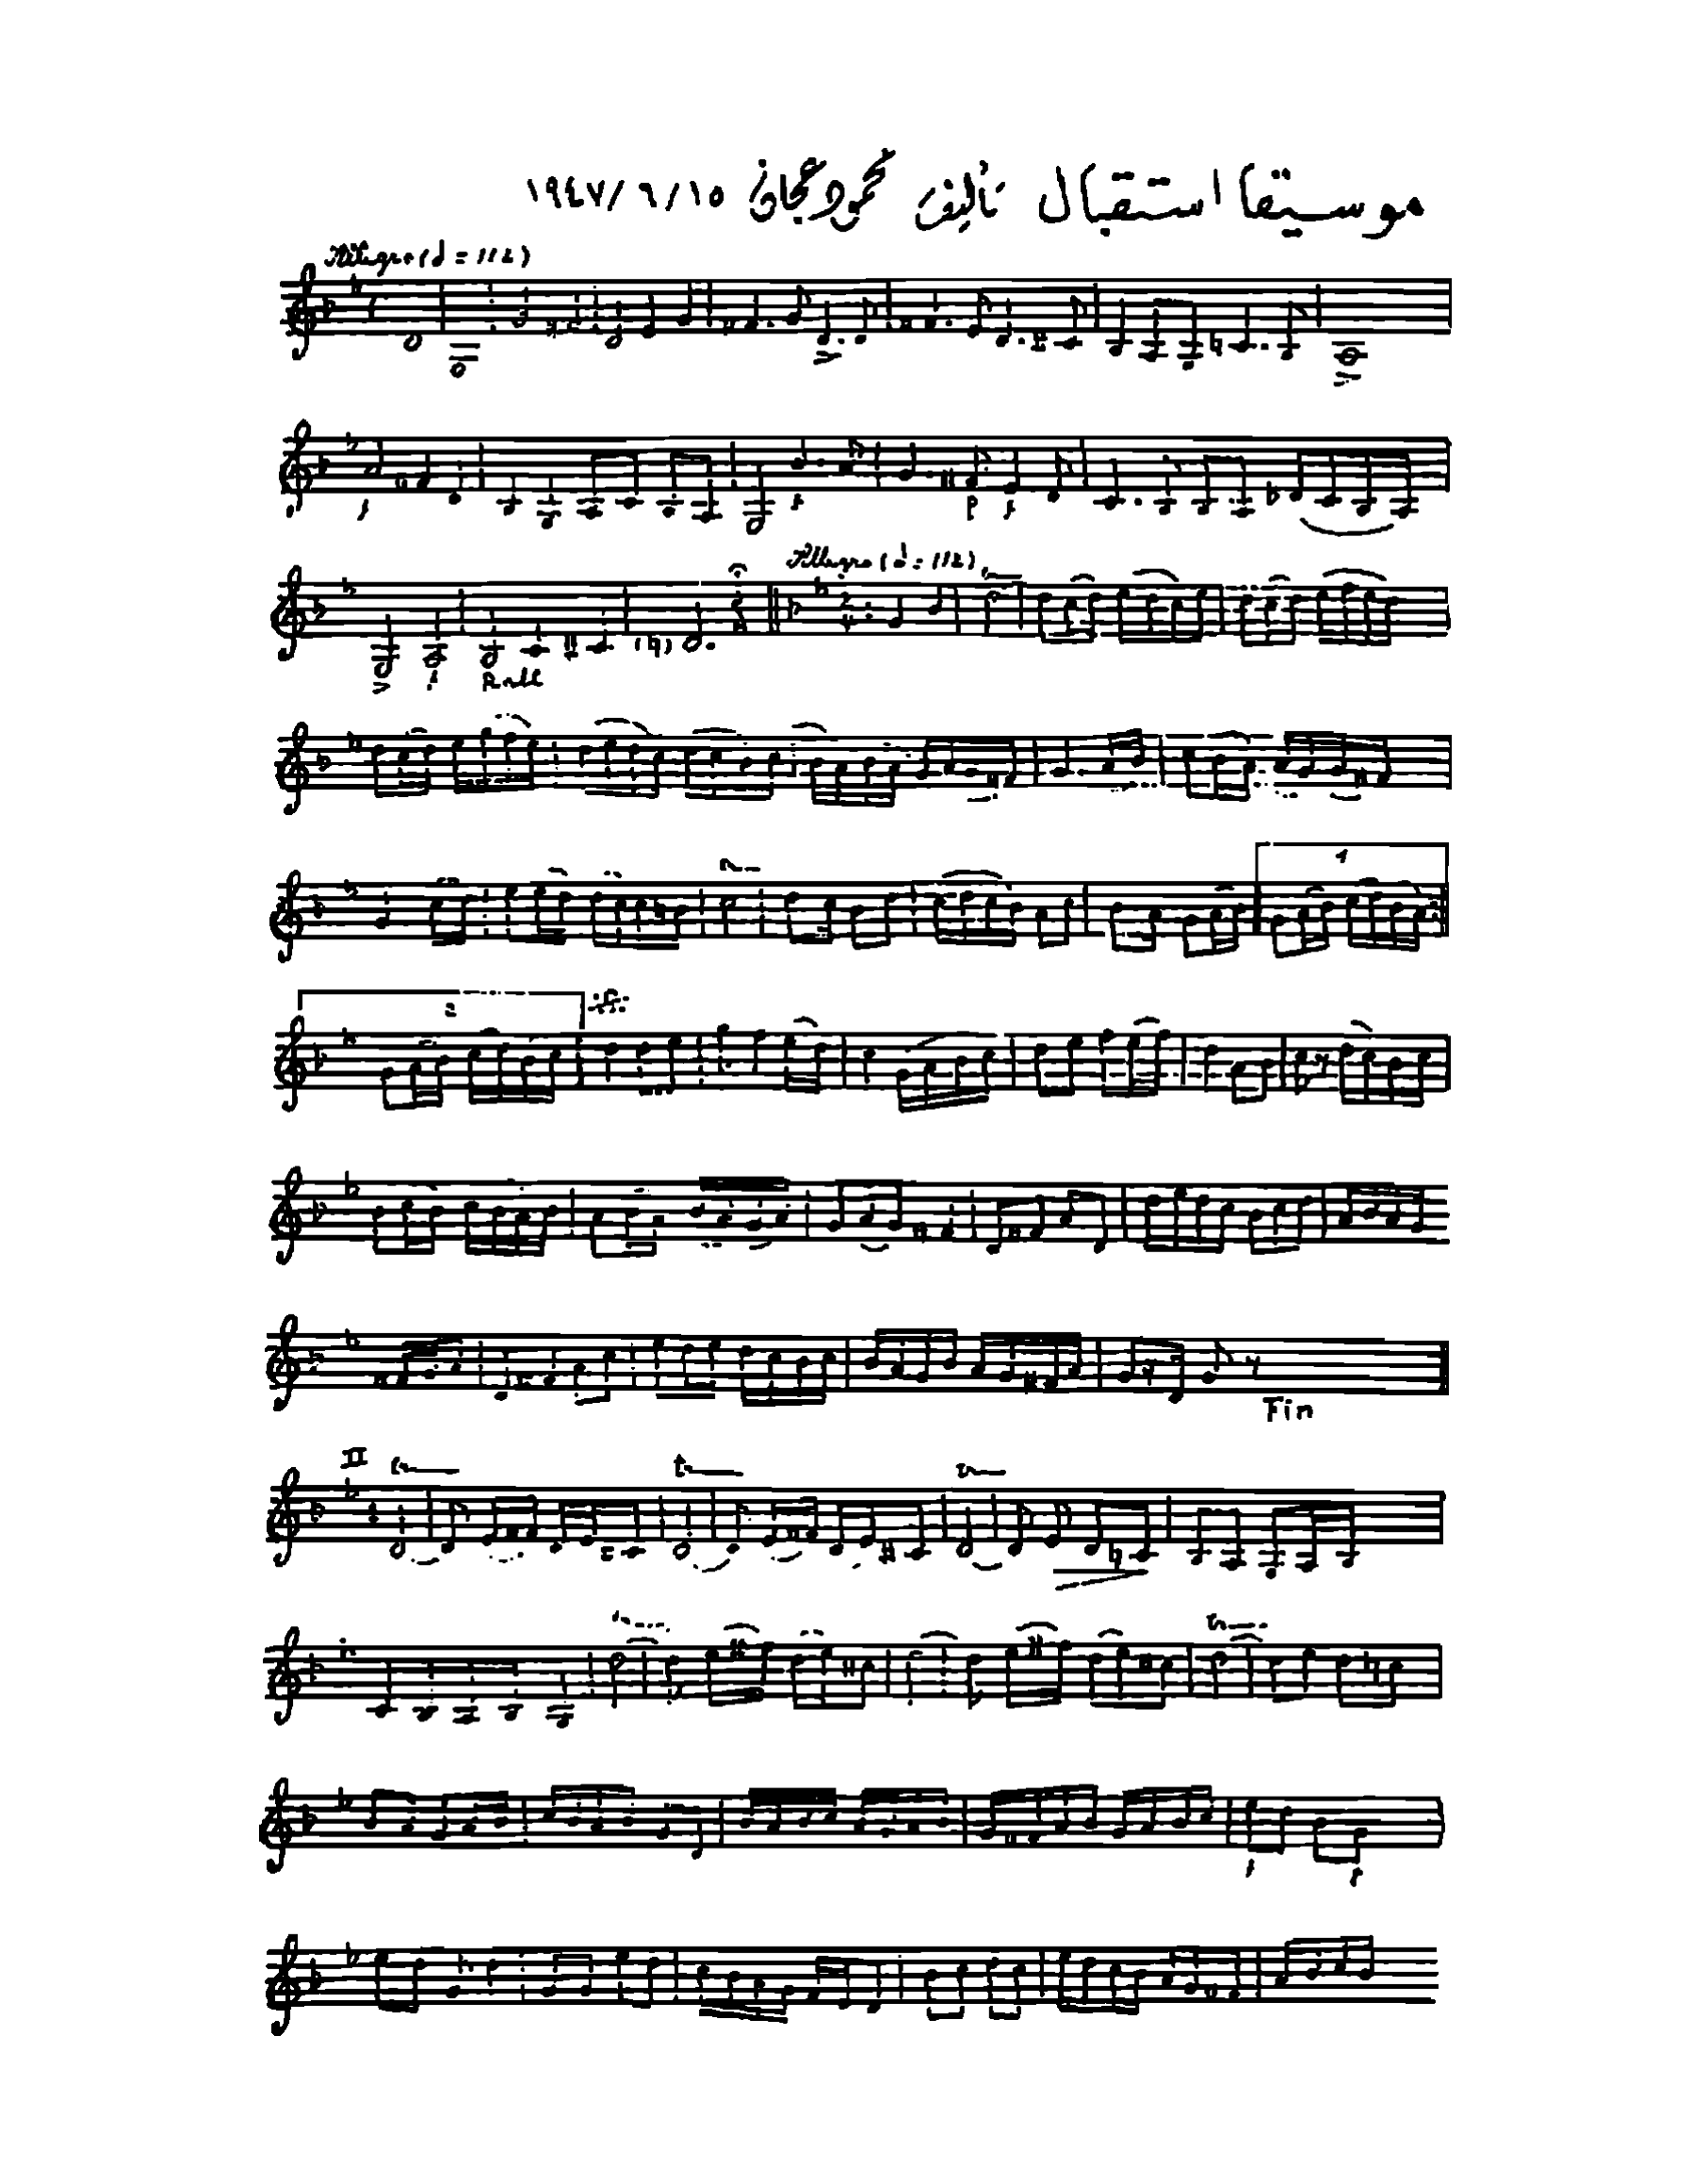 موسيقا استقبال تأليف محمود عجان ١٩٤٧/٦/١٥
Allegro (d = 112)
f
p f
f Rall
Allegro (d = 112)
1
2
Fin
II
tr tr tr
tr